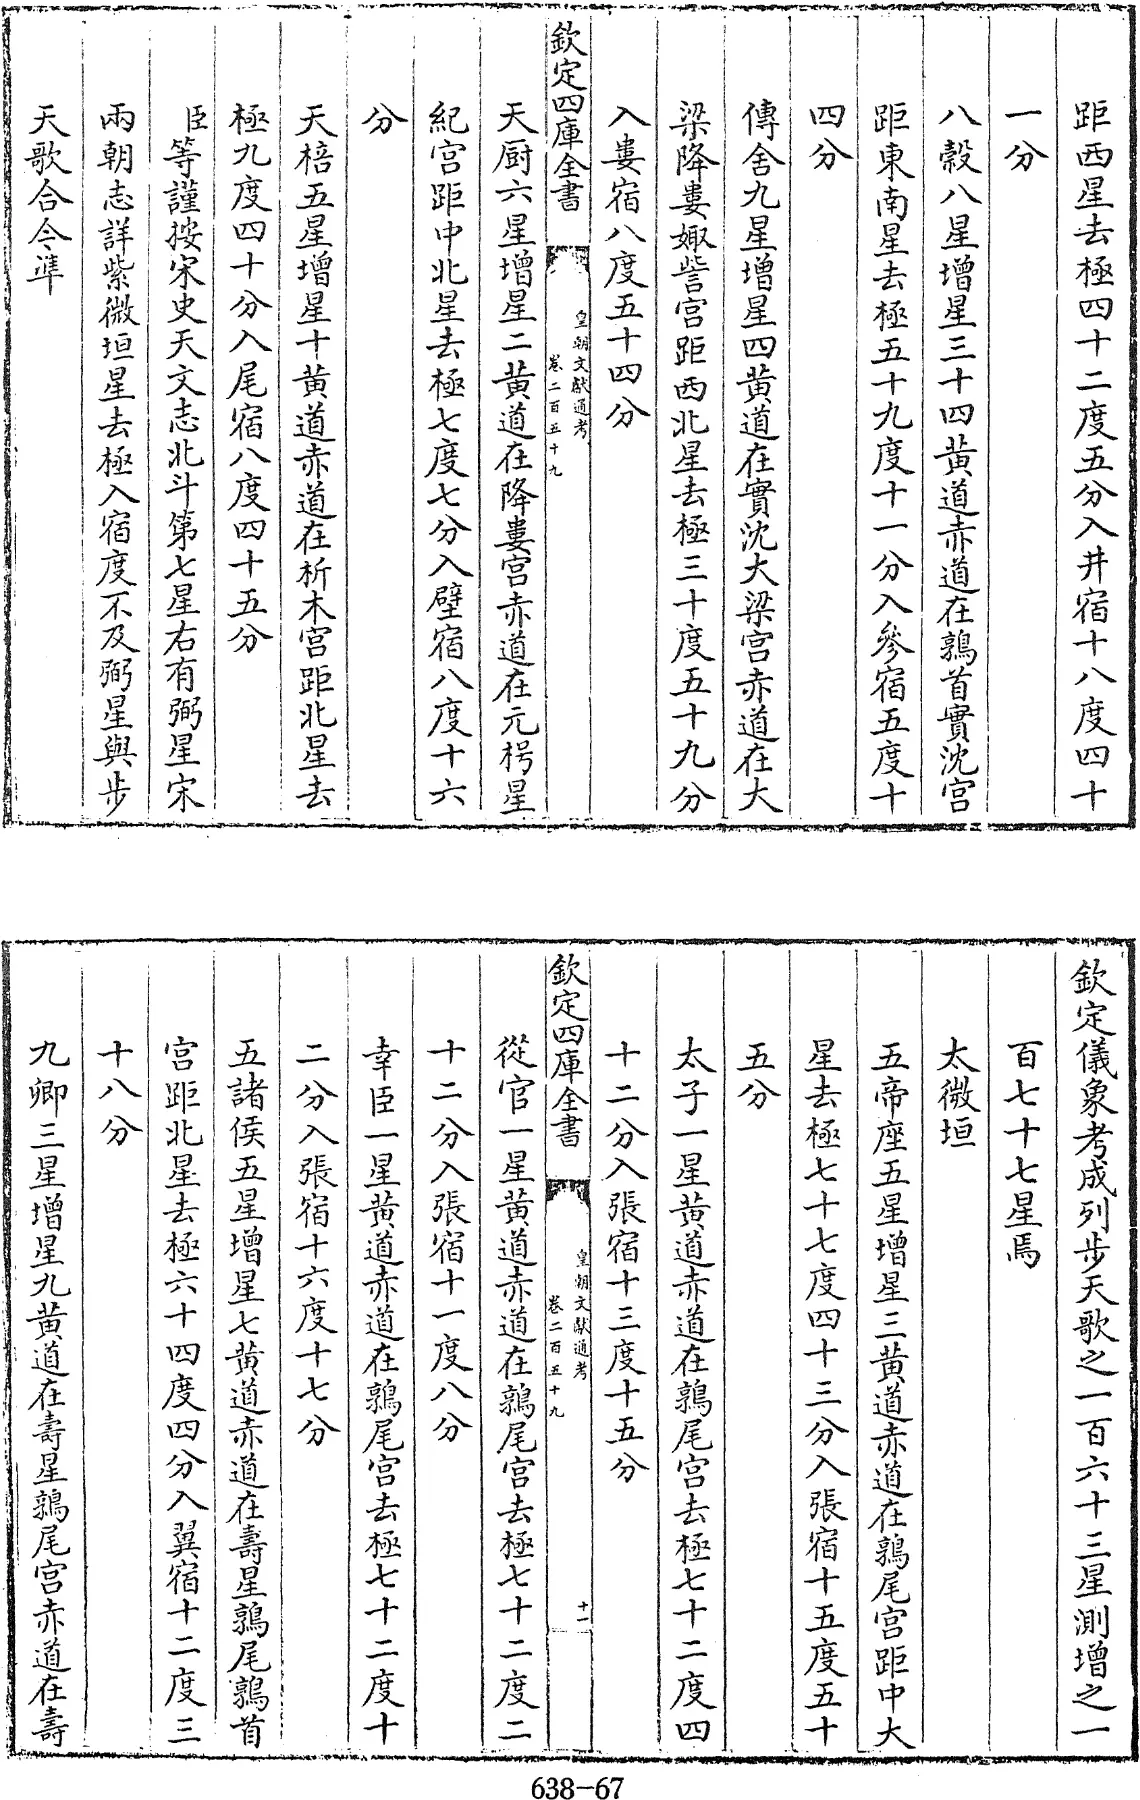 距西星去極四十二度五分入井宿十八度四十
一分
八穀八星增星三十四黃道赤道在鶉首實沈宮
距東南星去極五十九度十一分入參宿五度十
四分
傳舍九星增星四黃道在實沈大梁宮赤道在大
梁降婁娵訾宮距西北星去極三十度五十九分
入婁宿八度五十四分
欽定四庫全書
皇朝文獻通考
卷二百五十九
天廚六星增星二黃道在降婁宮赤道在元枵星
紀宮距中北星去極七度七分入壁宿八度十六
分
天棓五星增星十黃道赤道在析木宮距北星去
極九度四十分入尾宿八度四十五分
臣等謹按宋史天文志北斗第七星右有弼星宋
兩朝志詳紫微垣星去極入宿度不及弼星與步
天歌合今準
欽定儀象考成列步天歌之一百六十三星測增之一
百七十七星焉
太微垣
五帝座五星增星三黃道赤道在鶉尾宮距中大
星去極七十七度四十三分入張宿十五度五十
五分
太子一星黃道赤道在鶉尾宮去極七十二度四
十二分入張宿十三度十五分
欽定四庫全書
皇朝文獻通考
卷二百五十九
十一
從官一星黃道赤道在鶉尾宮去極七十二度二
十二分入張宿十一度八分
幸臣一星黃道赤道在鶉尾宮去極七十二度十
二分入張宿十六度十七分
五諸侯五星增星七黃道赤道在壽星鶉尾鶉首
宮距北星去極六十四度四分入翼宿十二度三
十八分
九卿三星增星九黃道在壽星鶉尾宮赤道在壽
638-67